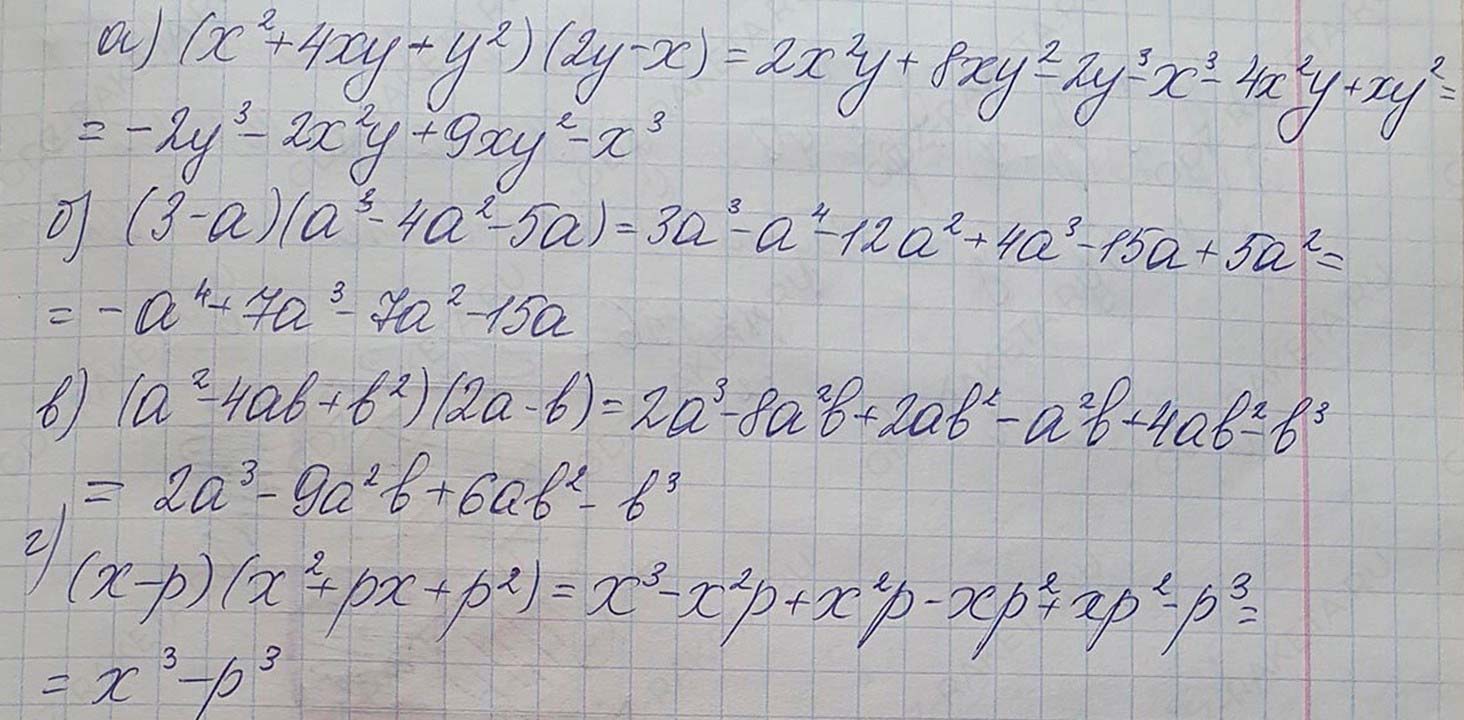 а) (x²+4xy+y²)(2y-x)=2x²y+8xy²-2y³-x³-4x²y+xy²=
=-2y³-2x²y+9xy²-x³
б) (3-a)(a³-4a²-5a)=3a³-a⁴-12a²+4a³-15a+5a²=
=-a⁴+7a³-7a²-15a
в) (a²-4ab+b²)(2a-b)=2a³-8a²b+2ab²-a²b+4ab²-b³
= 2a³-9a²b+6ab²-b³
г) (x-p)(x²+px+p²)=x³-x²p+x²p-xp²+xp²-p³=
=x³-p³